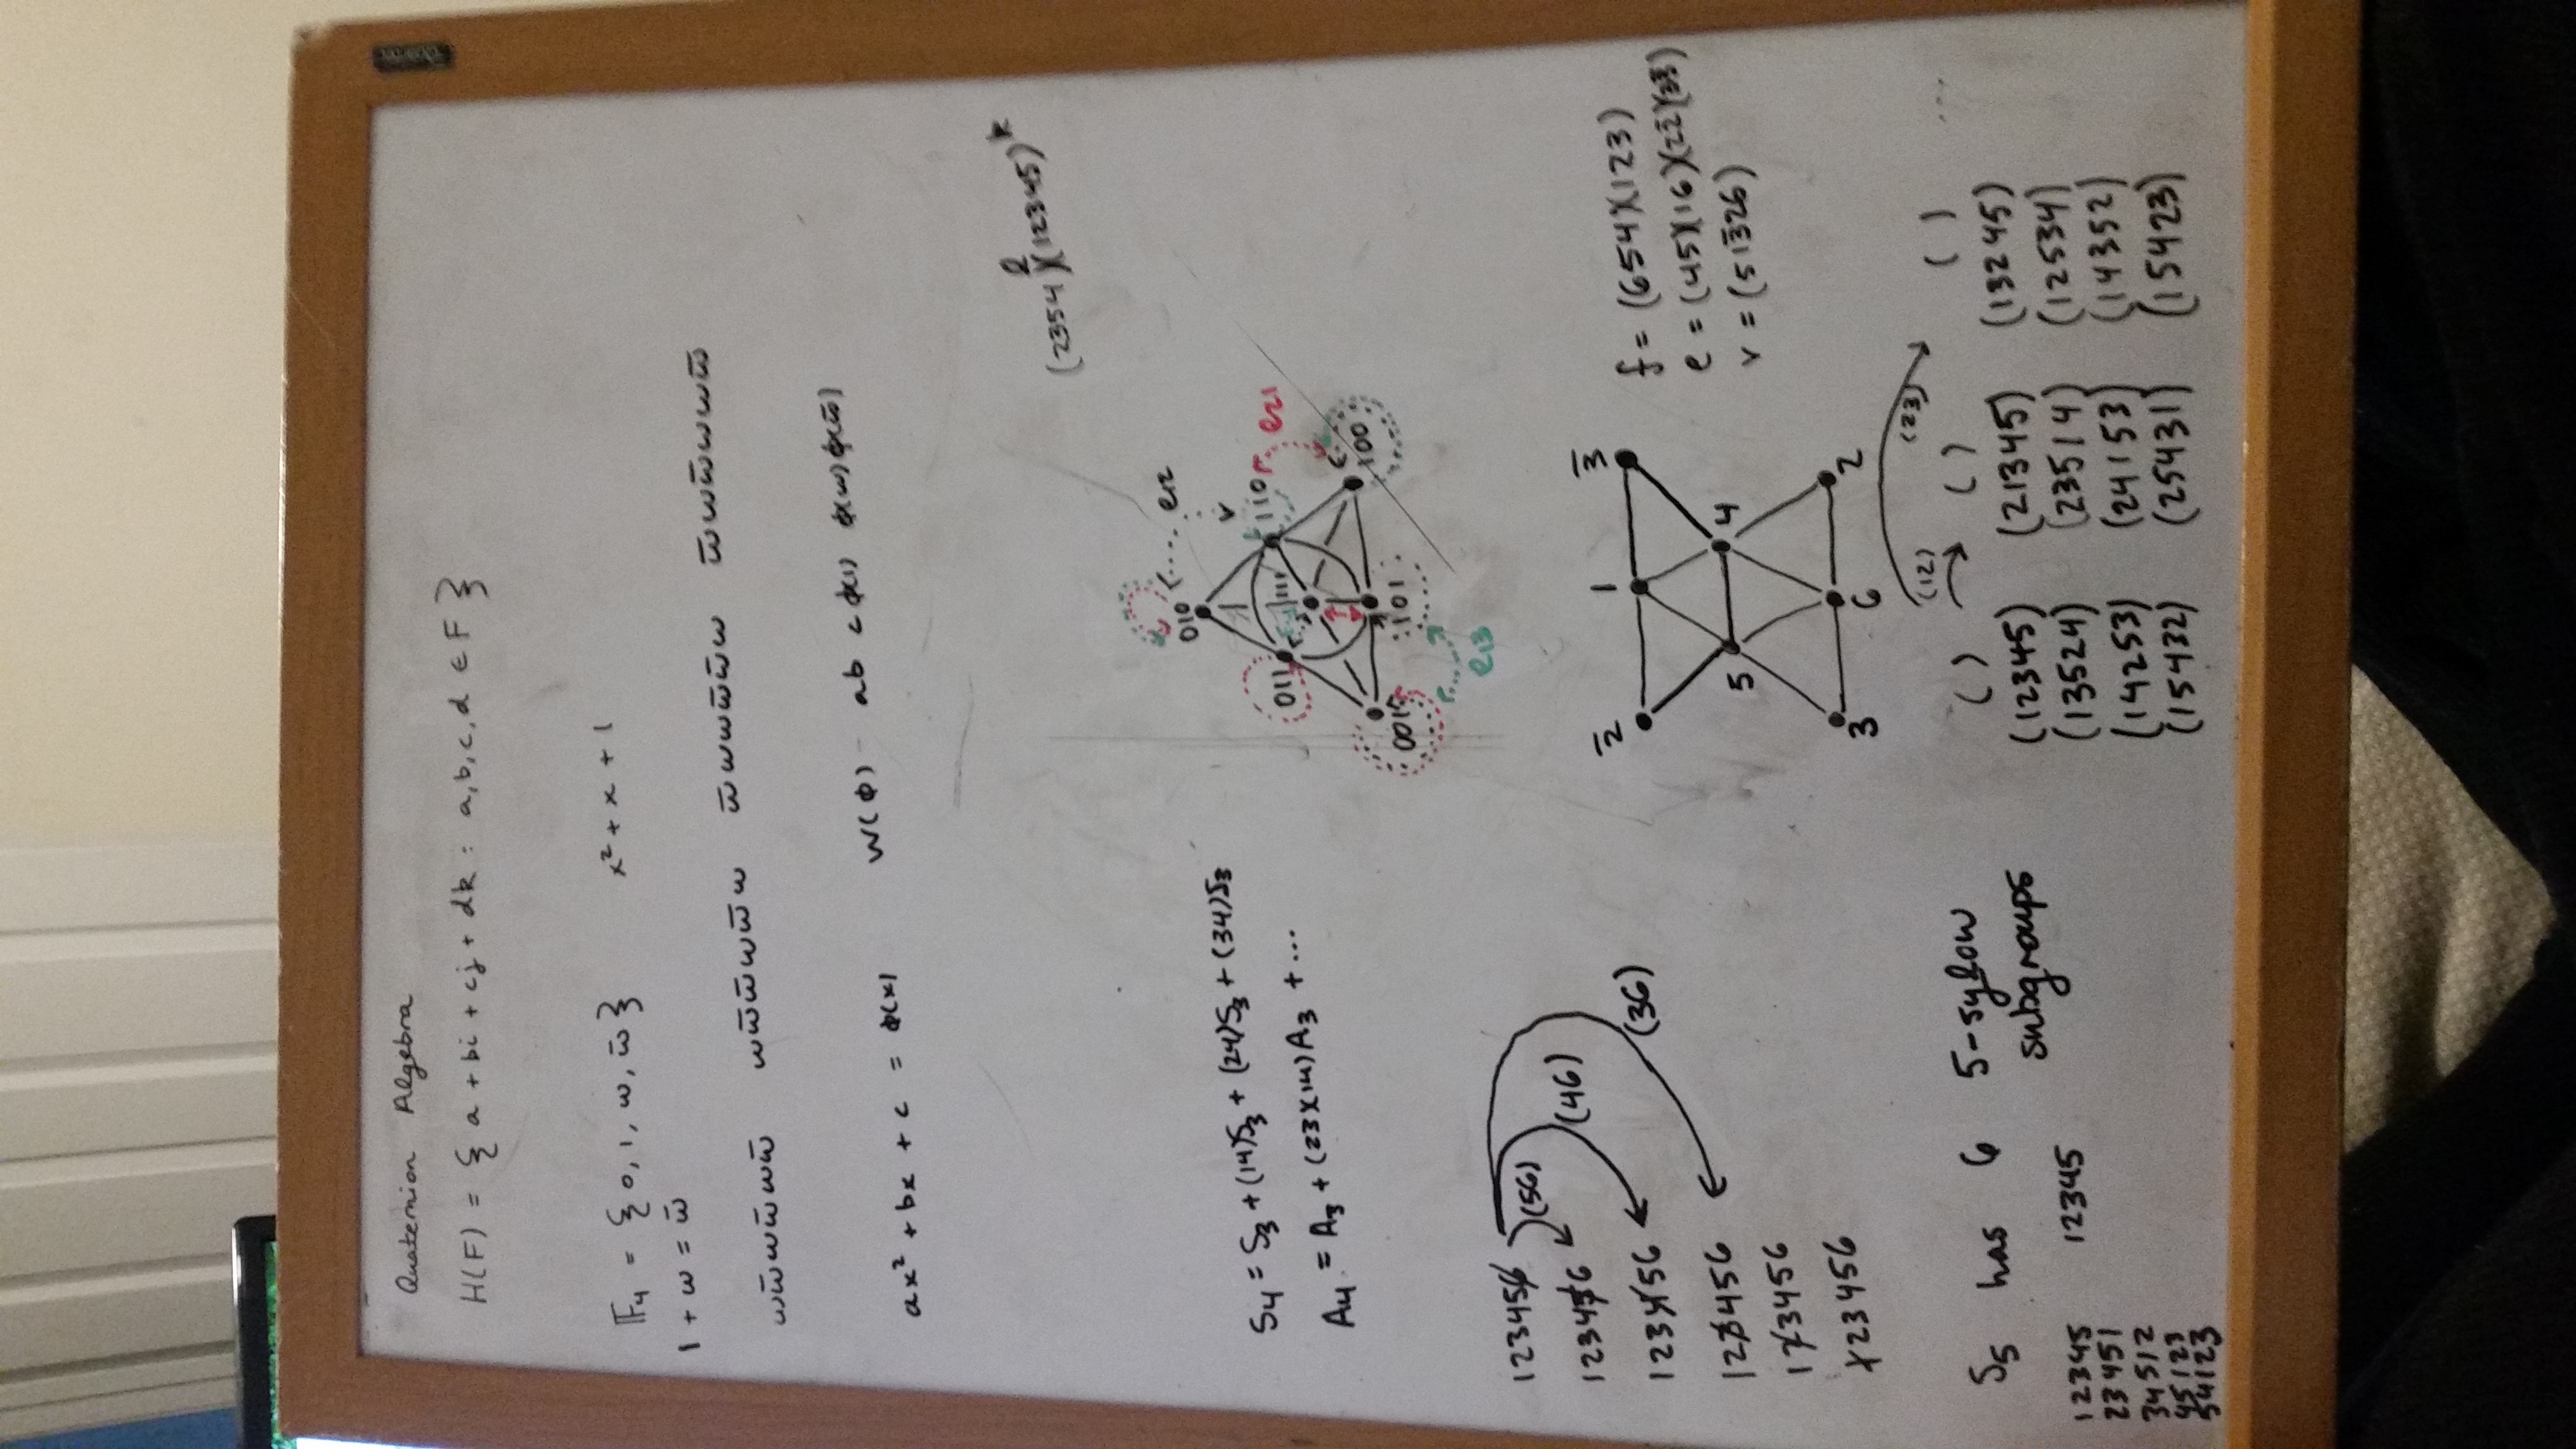 Quaternion Algebra
H(F) = { a + bi + cj + dk : a,b,c,d ∈ F }
𝔽₄ = { 0, 1, w, w̄ } x² + x + 1
1 + w = w̄
ww̄ww̄ww̄ ww̄w̄ww̄w w̄www̄w̄w w̄ww̄www̄
ax² + bx + c = ϕ(x) W(ϕ) ab c ϕ(1) ϕ(w) ϕ(w̄)
(2354)^l(12345)^k
S₄ = S₃ + (14)S₃ + (24)S₃ + (34)S₃
A₄ = A₃ + (23)(14)A₃ + ...
e12
010
011
111
110
e21
001
101
100
e13
123456 (56)
123456 (46)
123456 (36)
123456
123456
123456
2̄ 1 3̄
5 4
3 6 2
f = (654)(123)
e = (45)(16)(22̄)(33̄)
v = (513̄26)
S5 has 6 5-sylow
subgroups
12345 12345
23451
34512
45123
54123
(12) (23)
( ) ( ) ( ) ...
(12345) (21345) (13245)
(13524) (23514) (12534)
(14253) (24153) (14352)
(15432) (25431) (15423)